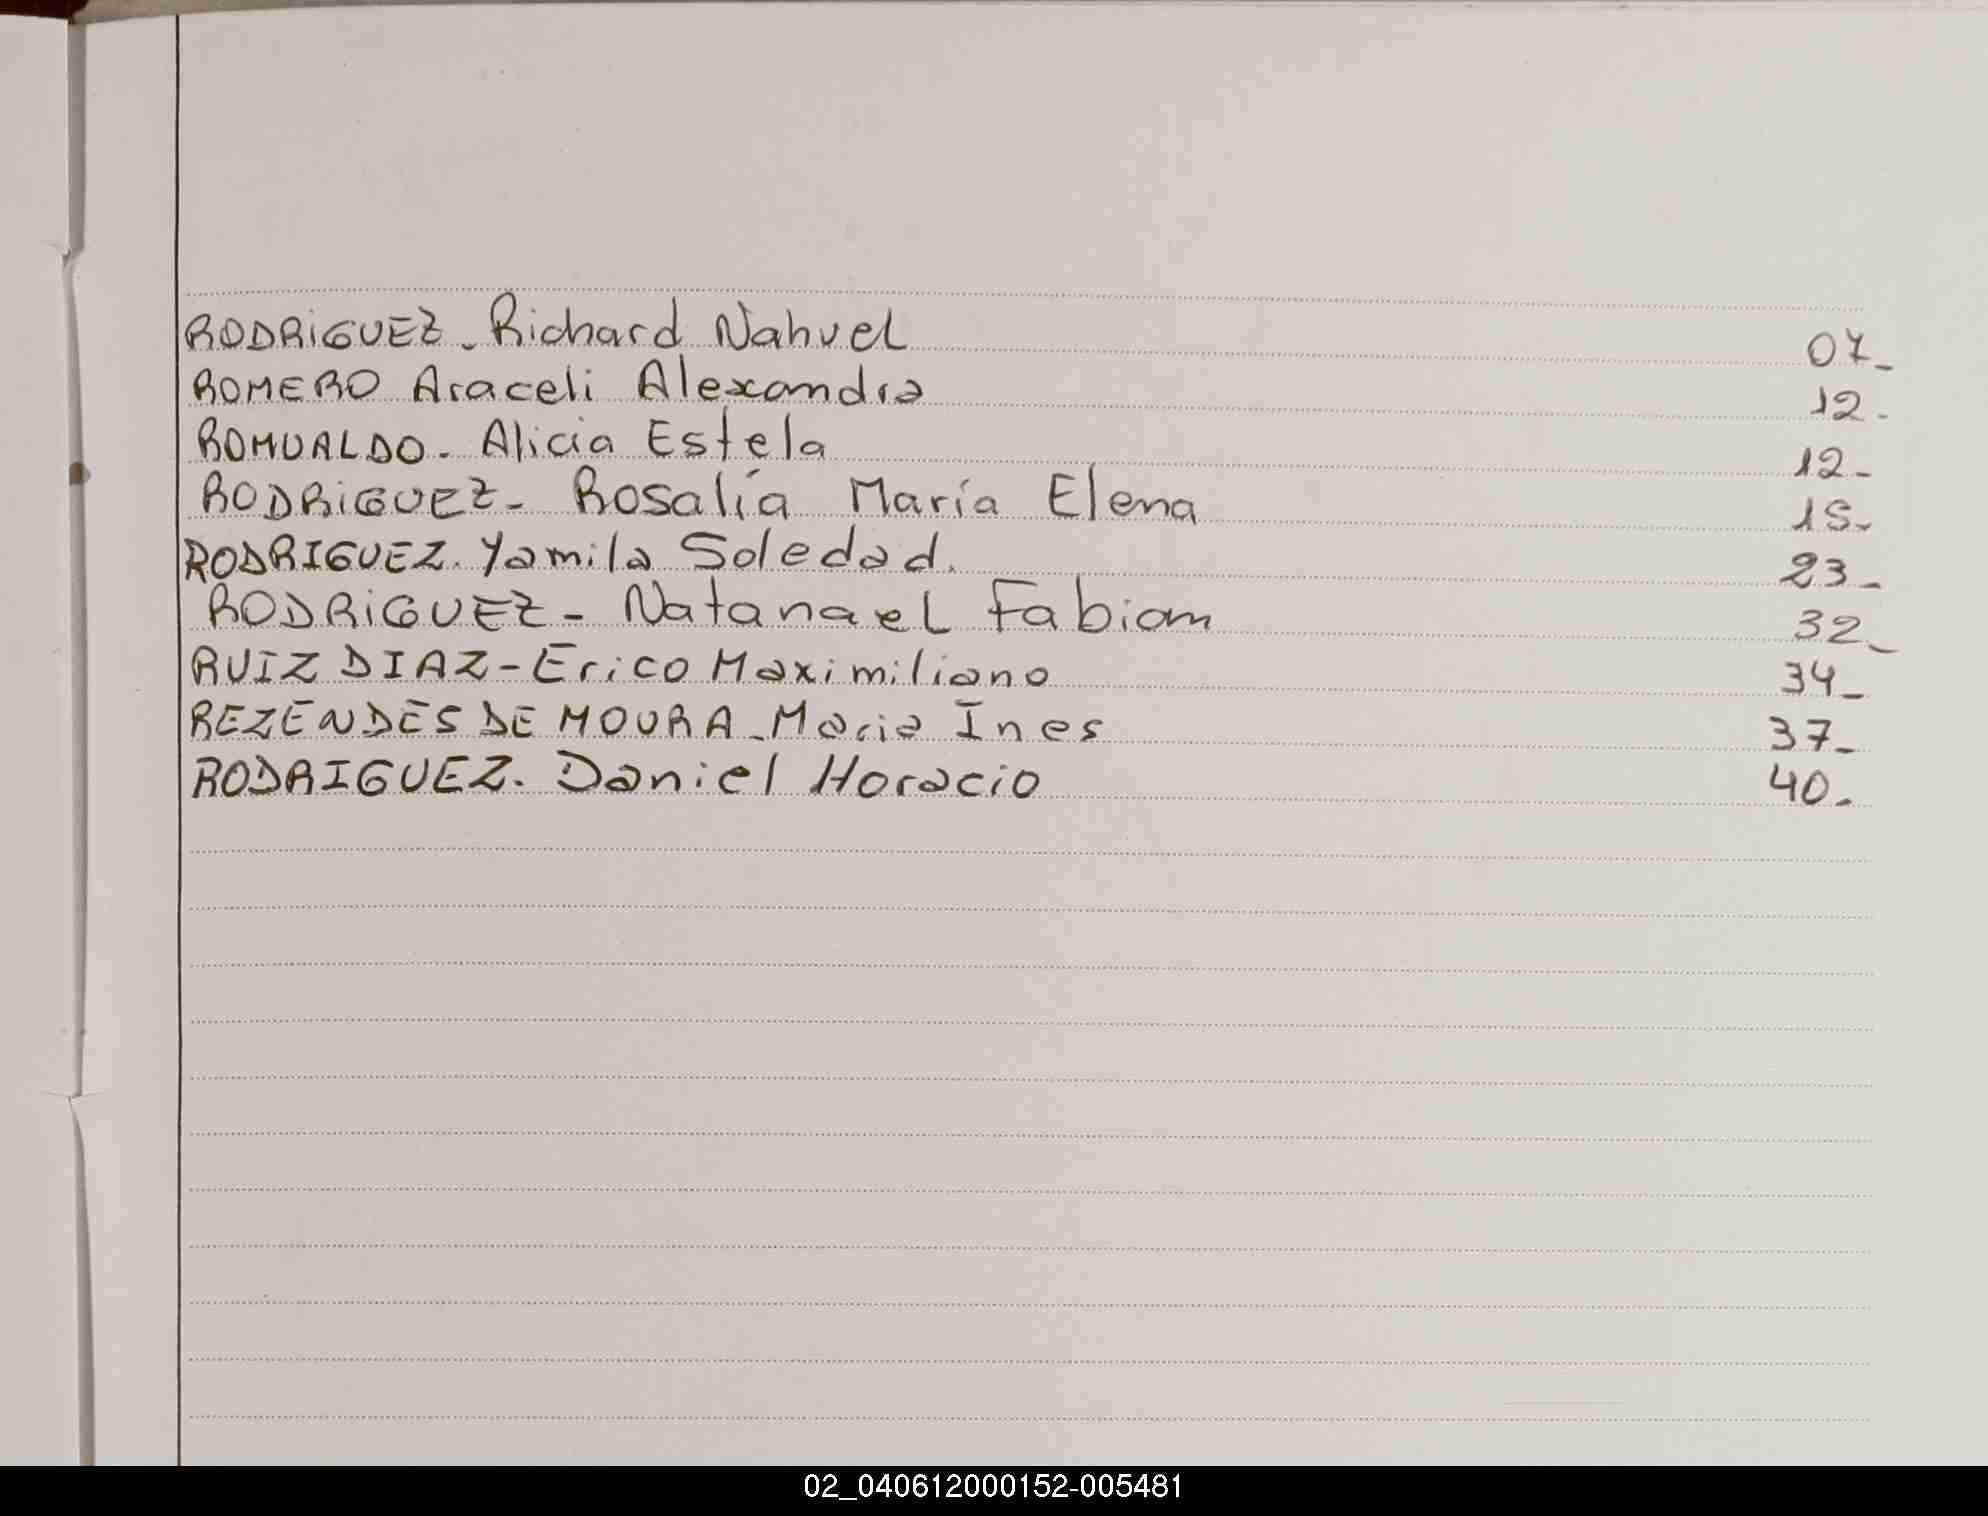 RODRiGUEZ. Richard Nahuel 07-
ROMERO Araceli Alexandra 12-
ROMUALDO- Alicia Estela 12-
RODRiGUEZ- Rosalía María Elena 15-
RODRIGUEZ. Yamila Soledad. 23-
RODRiGUEZ- Natanael Fabian 32-
RUIZ DIAZ-Erico Maximiliano 34-
REZENDES DE MOURA-Maria Ines 37-
RODRIGUEZ. Daniel Horacio 40-
02_040612000152-005481